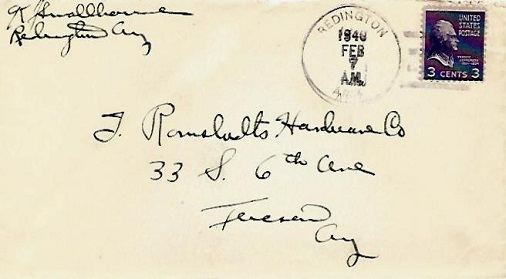 Redington Ariz
REDINGTON
1940
FEB
7
AM.
ARIZ.
UNITED
STATES
POSTAGE
3 CENTS 3
F. Ronstadts Hardware Co
33 S. 6th Ave
Tucson
Ariz